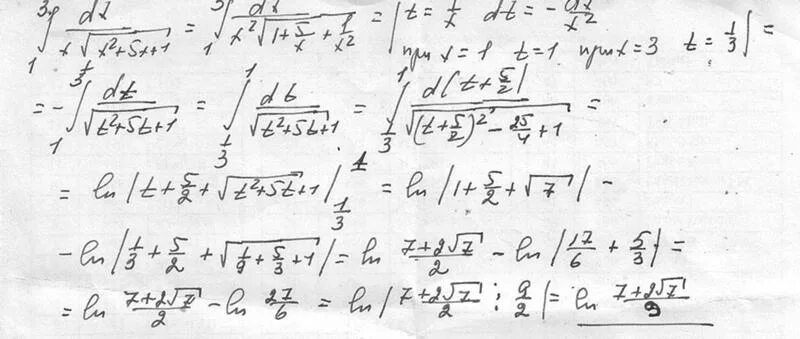 ∫₁³ dx / (x√(x²+5x+1)) = ∫₁³ dx / (x²√(1+5/x+1/x²)) = | t = 1/x dt = -dx/x² при x=1 t=1 при x=3 t=1/3 | =
= -∫₁^(1/3) dt / √(t²+5t+1) = ∫_(1/3)^1 dt / √(t²+5t+1) = ∫_(1/3)^1 d(t+5/2) / √((t+5/2)² - 25/4 + 1) =
= ln|t+5/2+√(t²+5t+1)| |_(1/3)^1 = ln|1+5/2+√7| -
- ln|1/3+5/2+√(1/9+5/3+1)| = ln (7+2√7)/2 - ln|17/6+5/3| =
= ln (7+2√7)/2 - ln 27/6 = ln|(7+2√7)/2 : 9/2| = ln (7+2√7)/9